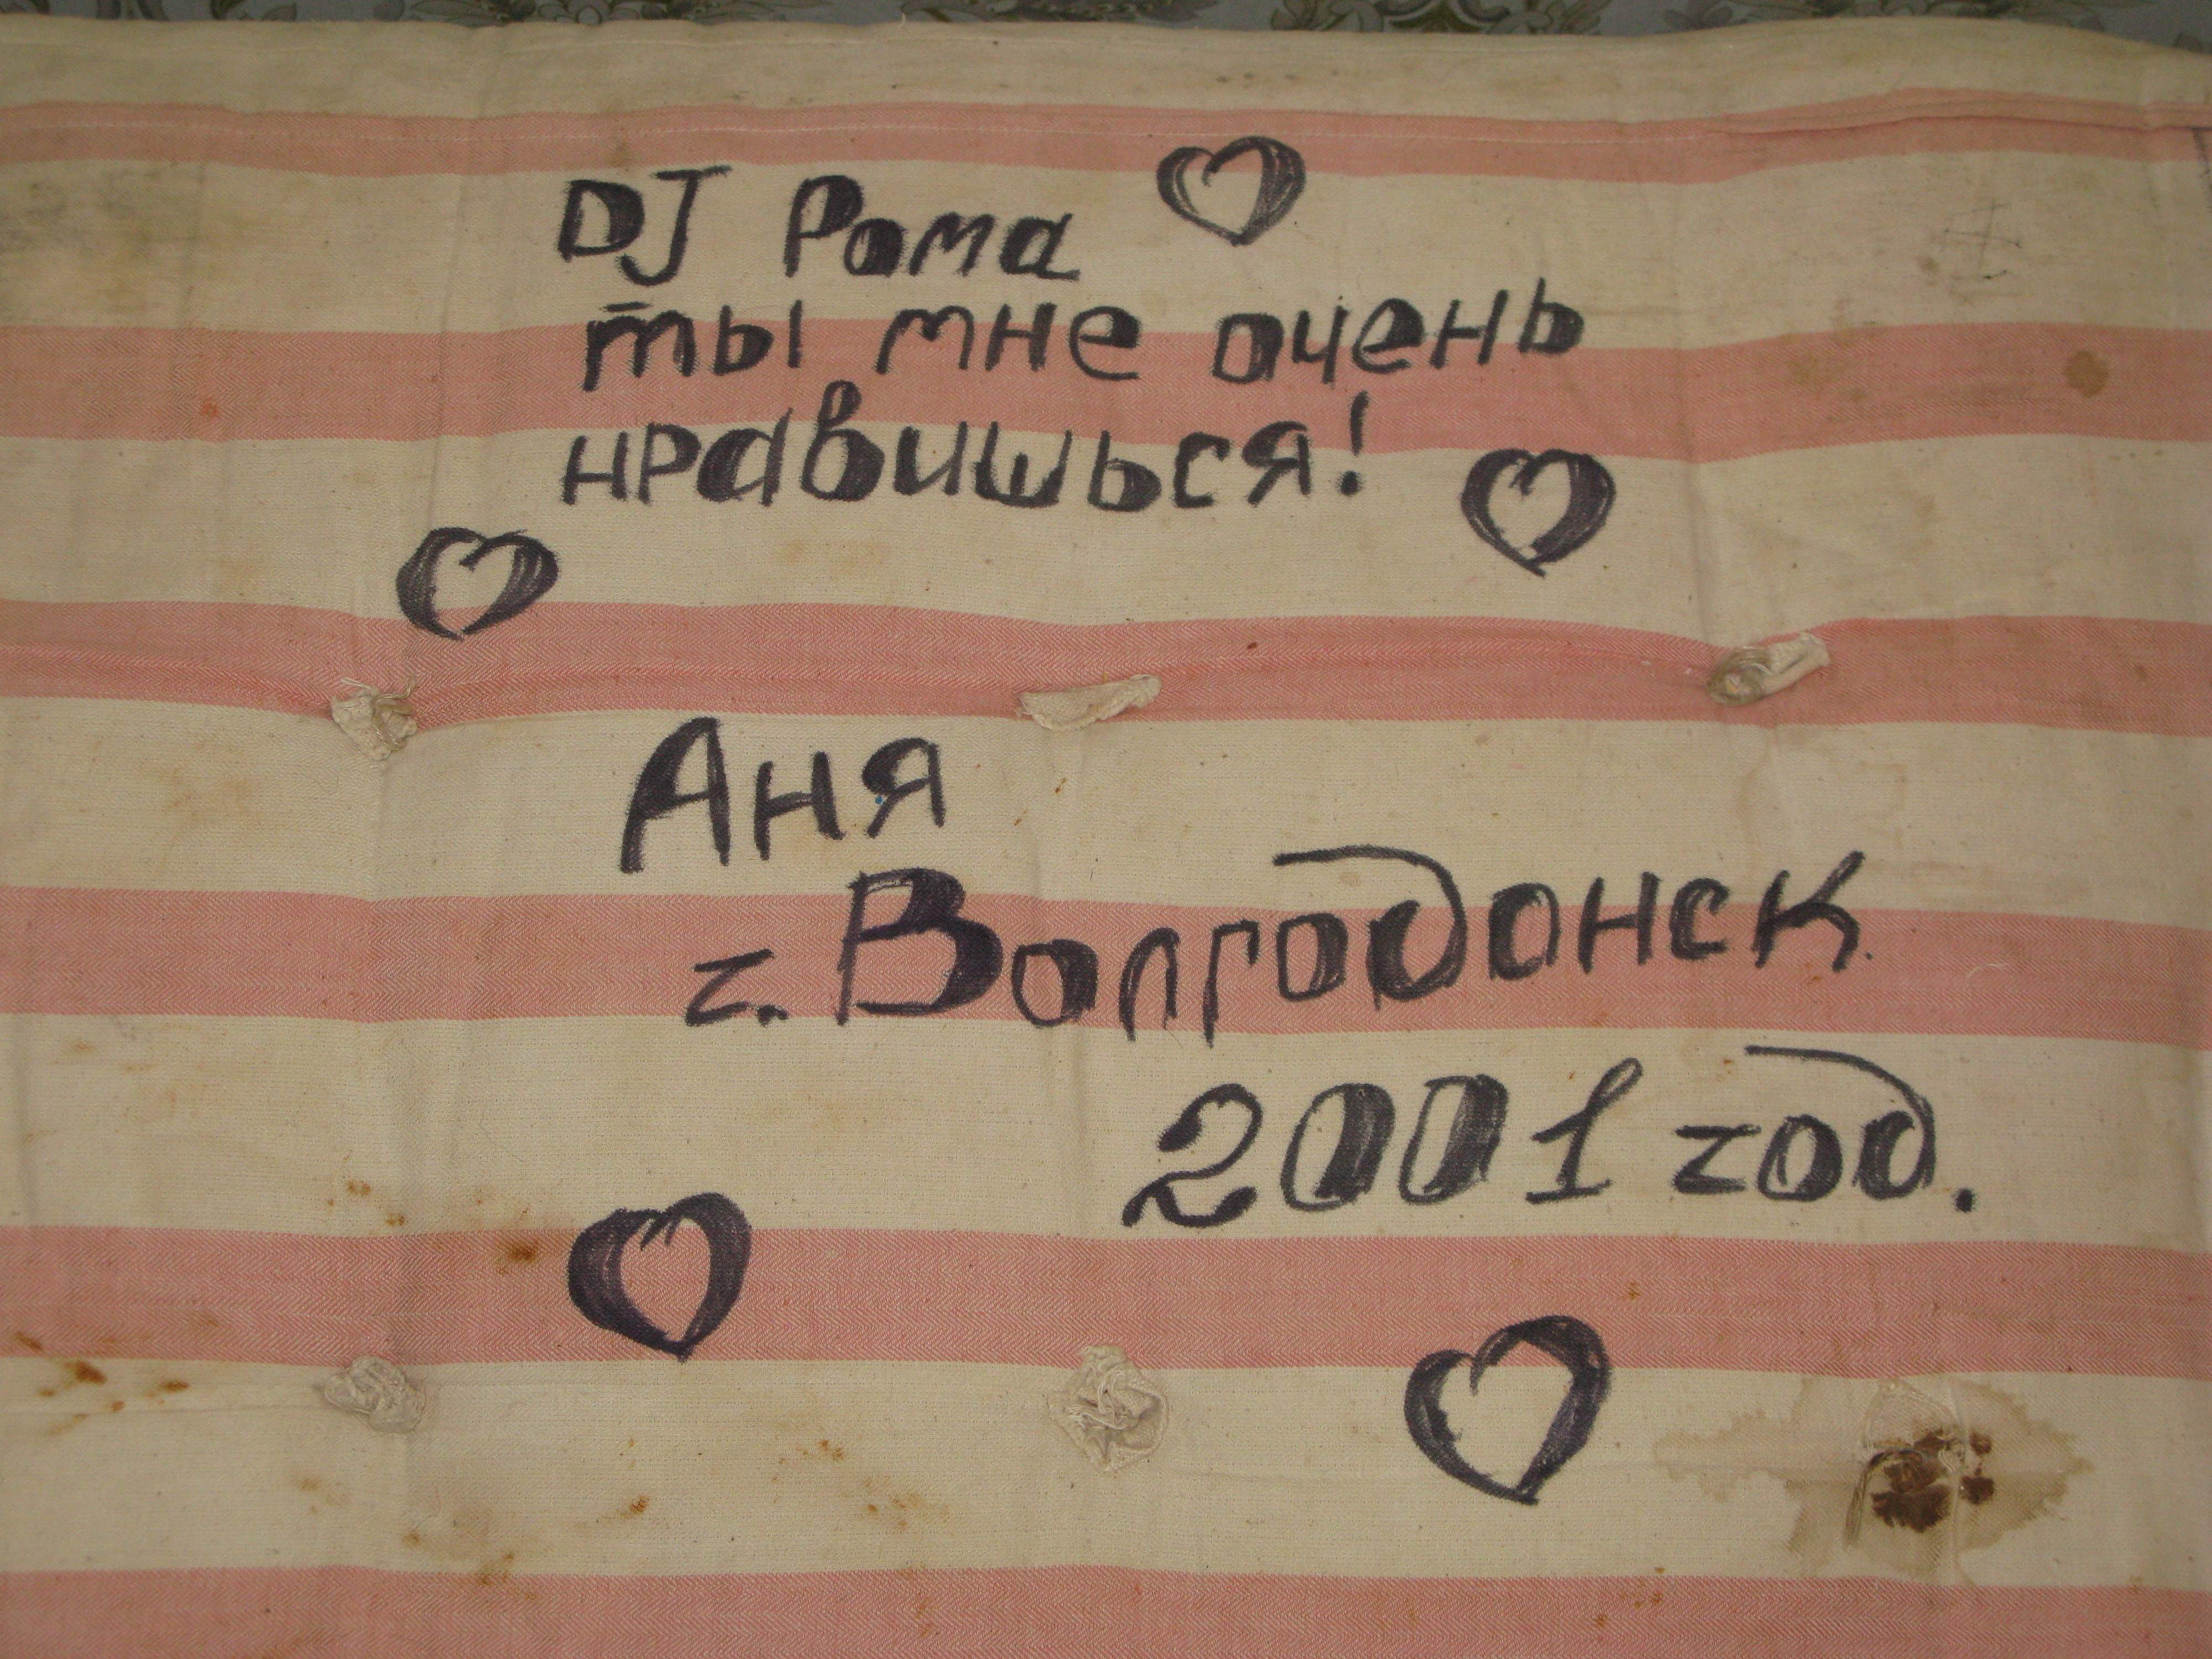 DJ Рома
ты мне очень
нравишься!
Аня
г. Волгодонск
2001 год.